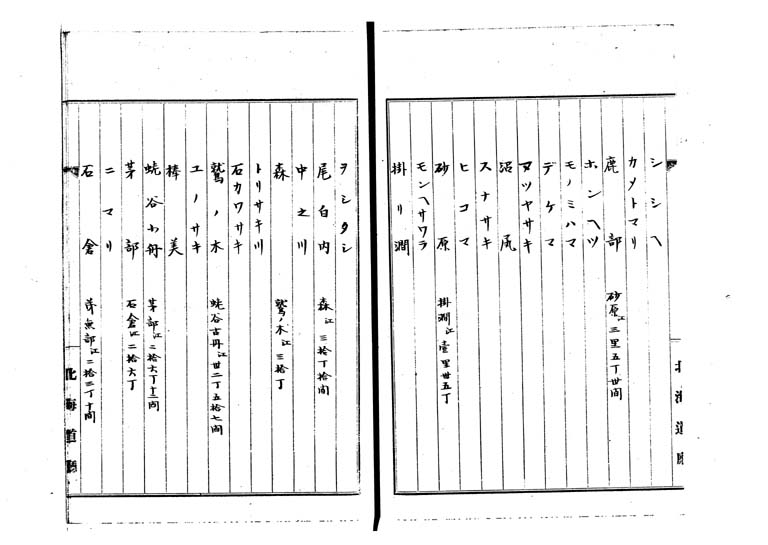 シシヘ
カメトマリ
鹿部 砂原江三里五丁卅間
ホンヘツ
モノミハマ
デケマ
ヌツヤサキ
沼尻
スナサキ
ヒコマ
砂原 掛澗江壹里卅五丁
モンヘサワラ
掛リ澗
北海道廳
ヲシタシ
尾白内 森江三拾丁拾間
中之川
森 鷲ノ木江三拾丁
トリサキ川
石カワサキ
鷲ノ木 蛯谷古丹江卅二丁五拾七間
ユノサキ
棒美
蛯谷小丹 茅部江二拾六丁十三間
茅部 石倉江二拾六丁
ニマリ
石倉 茂無部江二拾三丁十間
北海道廳